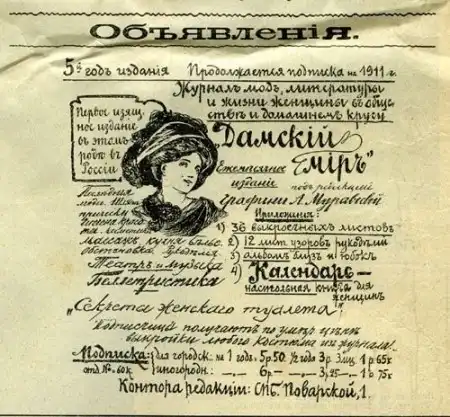 Объявленія.
5й годъ изданія Продолжается подписка на 1911 г.
Журналъ модъ, литературы
и жизни женщины въ общес
твѣ и домашнемъ кругу
Первое изящ
ное изданіе
въ этомъ
родѣ въ
Россіи
„Дамскій
міръ"
Ежемѣсячное
изданіе
подъ редакціей
графини А. Муравьевой
Приложенія:
1) 36 выкроечныхъ листовъ
2) 12 лист. узоровъ рукодѣлій
3) альбомъ блузъ и юбокъ
4) Календарь—
настольная книга для
женщинъ
моды
прически
массажъ кухня
обстановка
Театръ и Музыка
Беллетристика
„Секреты женскаго туалета"
Подписчицы получаютъ по умен. цѣнѣ
выкройки любого костюма изъ журнала!
Подписка: для городск.: на 1 годъ 5р.50. ½ года 3р. 3 мѣс. 1р 65к
отд. № 60к иногородн: — „ — 6р — „ — 3,25 — „ — 1р 75к
Контора редакціи: СПб. Поварской, 1.